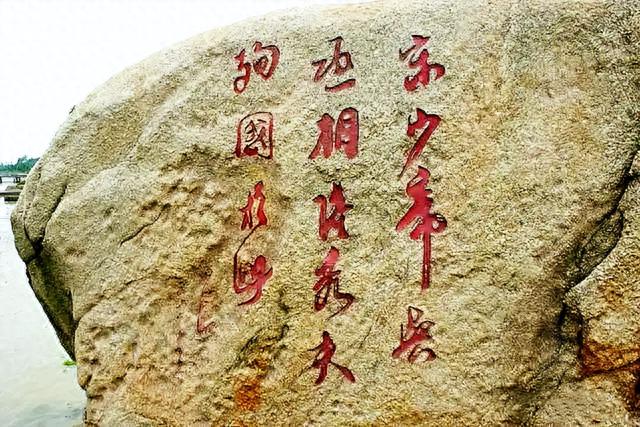 宋少帝與
丞相陸秀夫
殉國於此